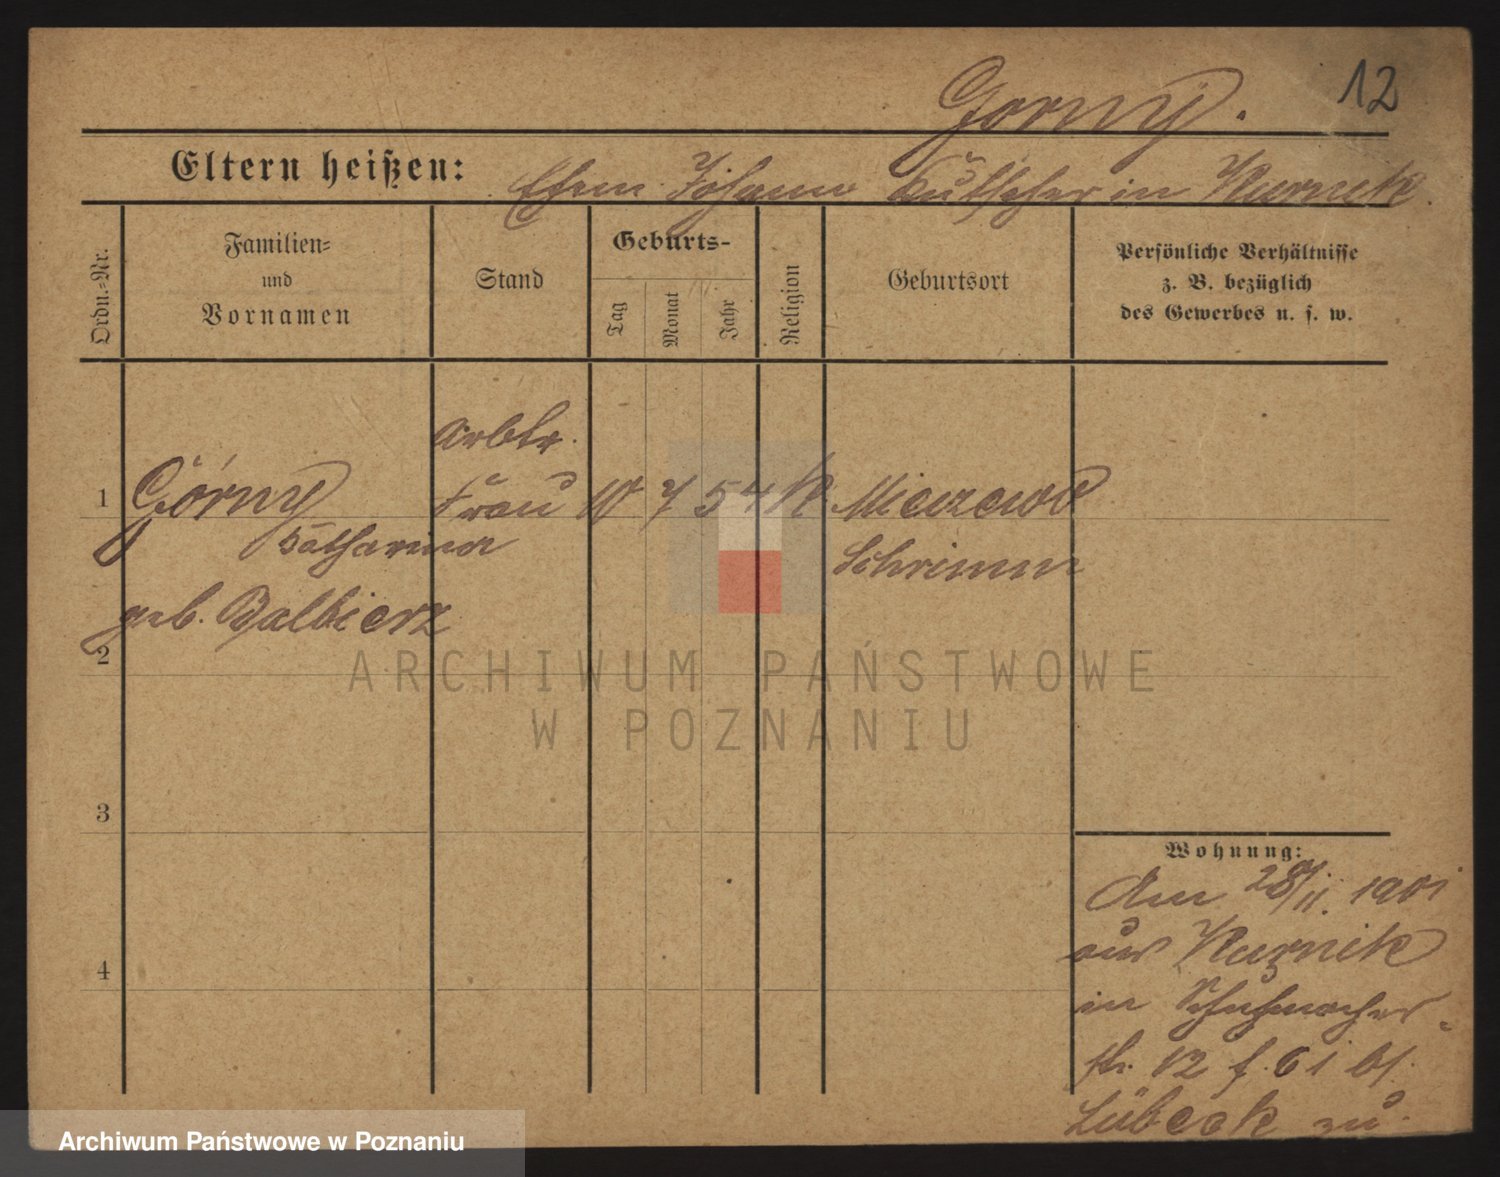 Gorny.
12
Eltern heißen:
Ehem. Johann Kutscher in Kurnik.
Ordn.-Nr.
Familien-
und
Vornamen
Stand
Geburts-
Tag
Monat
Jahr
Religion
Geburtsort
Persönliche Verhältnisse
z. B. bezüglich
des Gewerbes u. s. w.
Arbtr.
1 Górny Frau 10 7 54 K Mieczewo
Katharina Schrimm
geb. Balbierz
2
3
4
Wohnung:
Am 28/11. 1901
aus Kurnik
in Schuhmacher-
str. 12 f. 6 i bf.
Lübeck zu.
ARCHIWUM PAŃSTWOWE
W POZNANIU
Archiwum Państwowe w Poznaniu